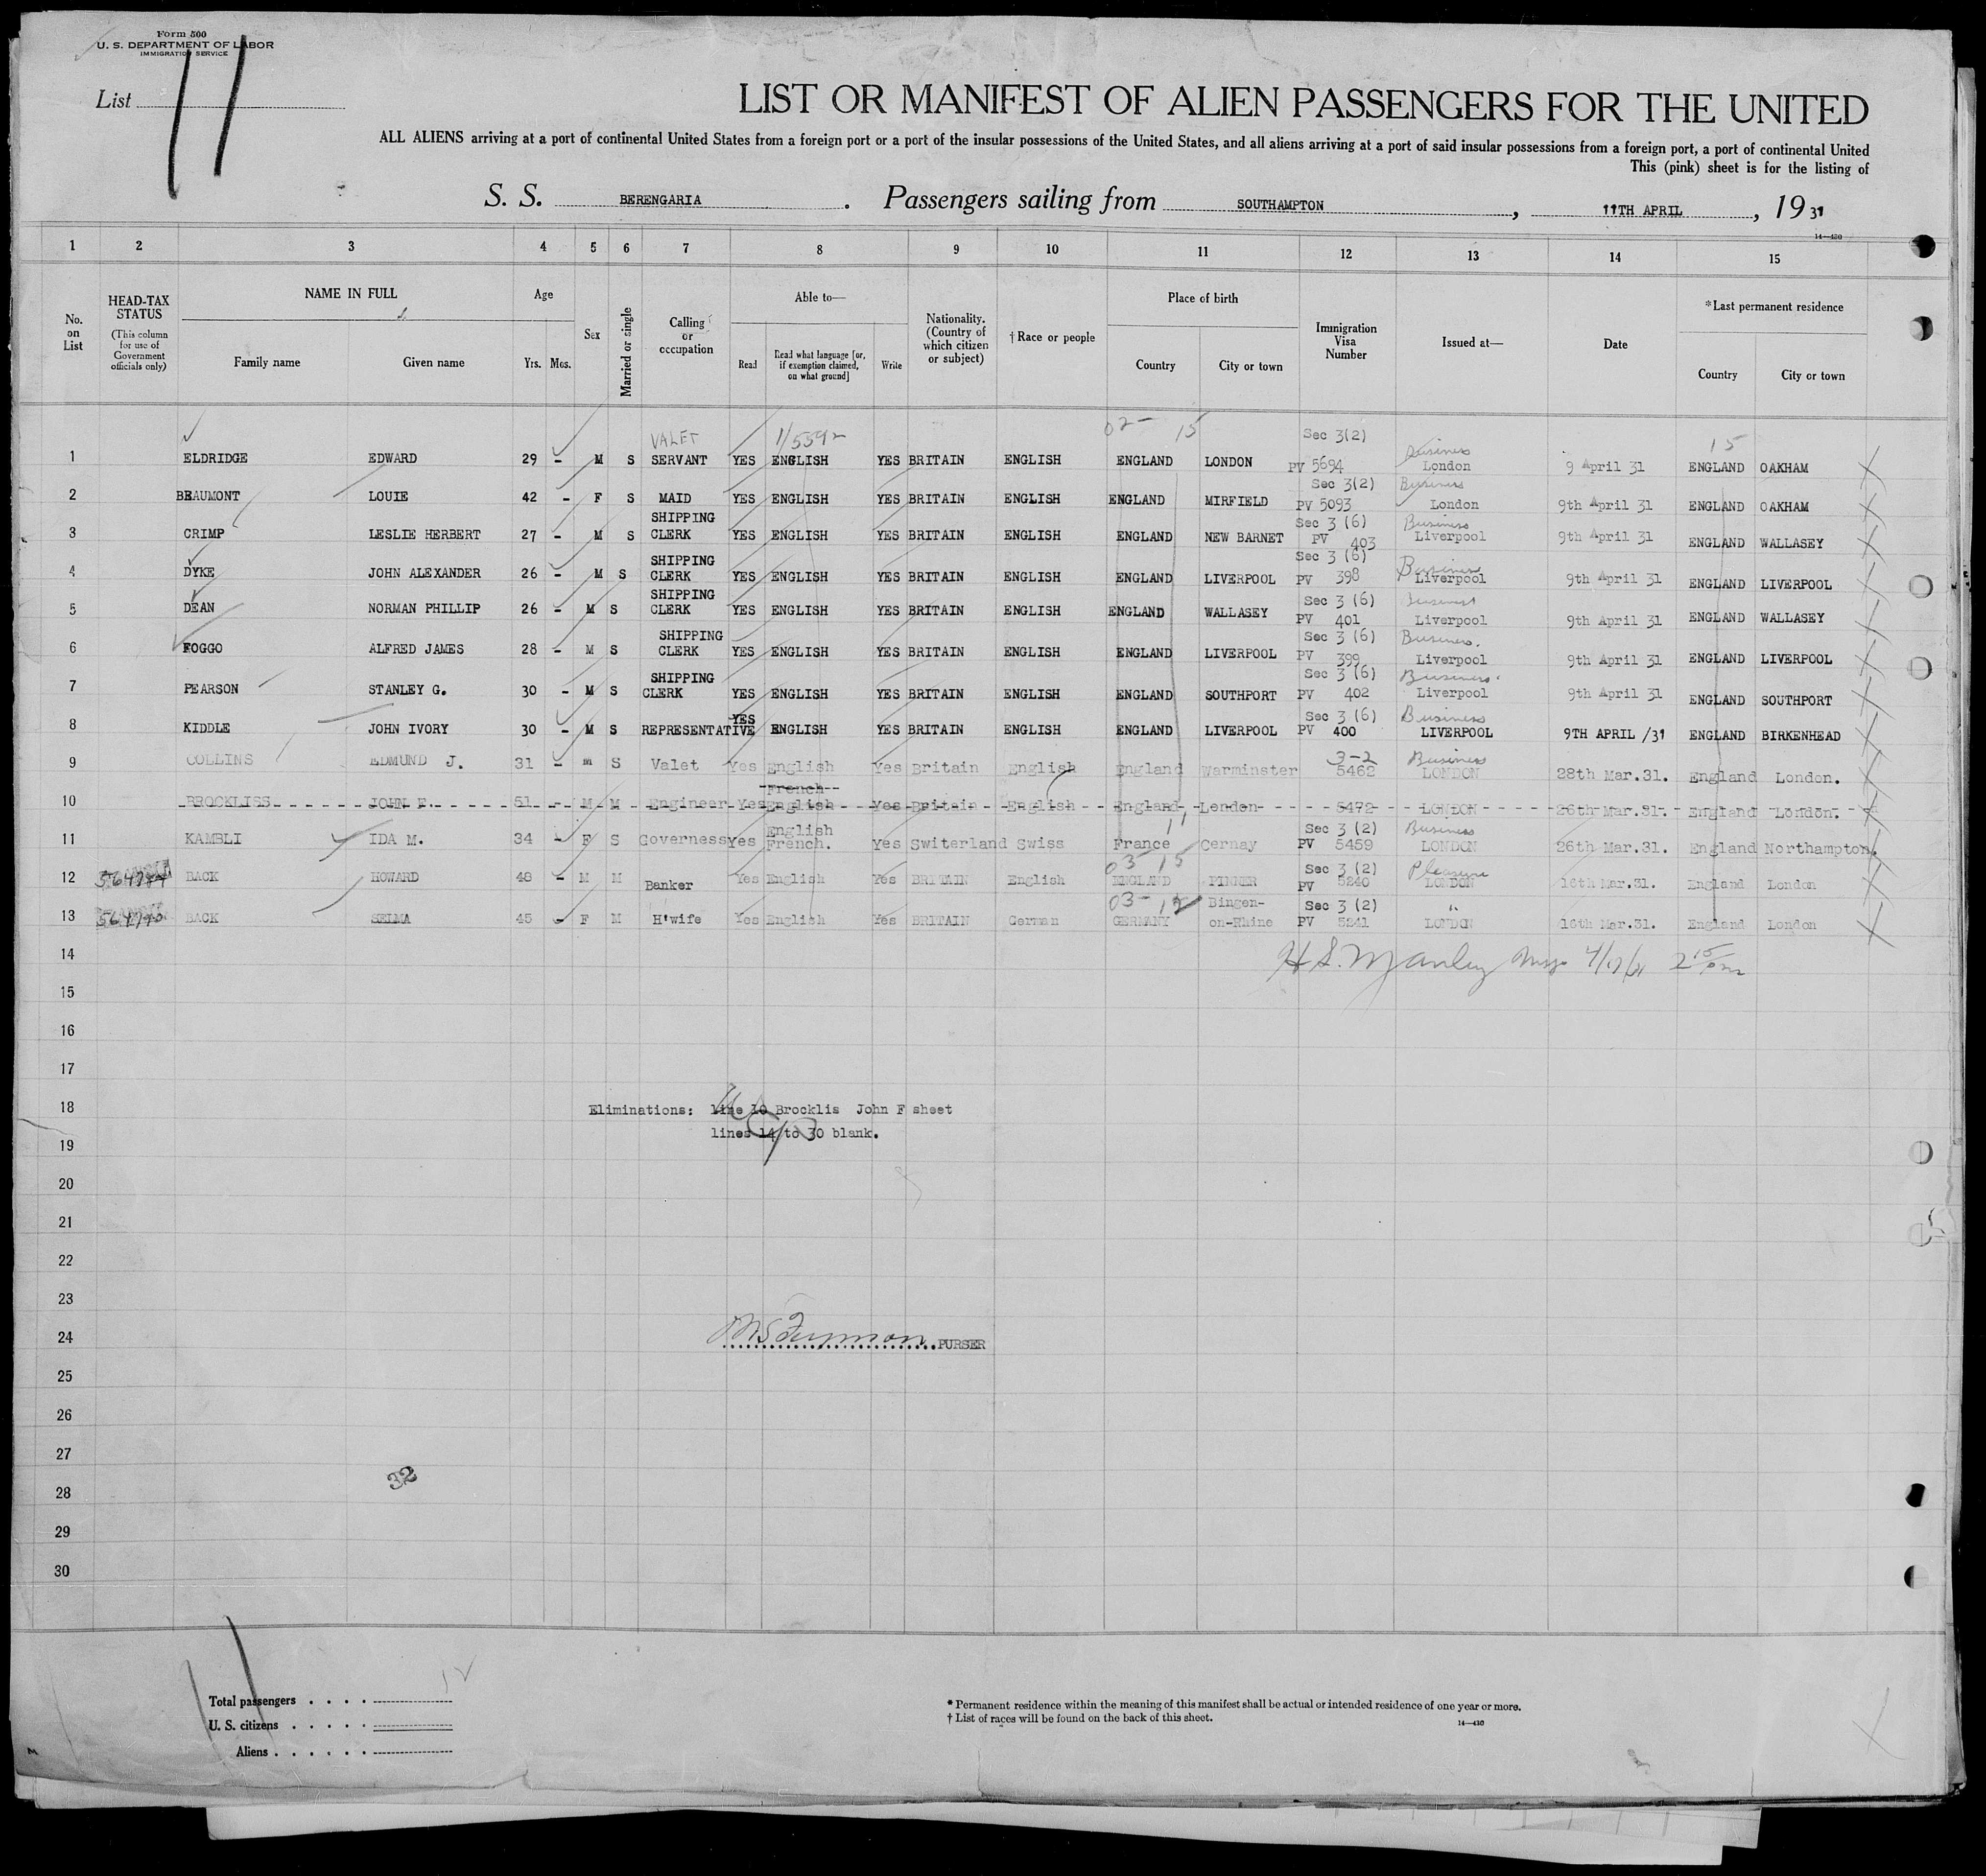 Form 500
U. S. DEPARTMENT OF LABOR
IMMIGRATION SERVICE
List 11
LIST OR MANIFEST OF ALIEN PASSENGERS FOR THE UNITED
ALL ALIENS arriving at a port of continental United States from a foreign port or a port of the insular possessions of the United States, and all aliens arriving at a port of said insular possessions from a foreign port, a port of continental United
This (pink) sheet is for the listing of
S. S. BERENGARIA. Passengers sailing from SOUTHAMPTON, 11TH APRIL, 1931
14—430
1 2 3 4 5 6 7 8 9 10 11 12 13 14 15
No. on List
HEAD-TAX STATUS
(This column for use of Government officials only)
NAME IN FULL
Family name Given name
Age
Yrs. Mos.
Sex
Married or single
Calling or occupation
Able to—
Read
Read what language [or, if exemption claimed, on what ground]
Write
Nationality. (Country of which citizen or subject)
† Race or people
Place of birth
Country City or town
Immigration Visa Number
Issued at—
Date
* Last permanent residence
Country City or town
VALET 1/5592 02- 15 Sec 3(2) Business 15
1 ELDRIDGE EDWARD 29 - M S SERVANT YES ENGLISH YES BRITAIN ENGLISH ENGLAND LONDON PV 5694 London 9 April 31 ENGLAND OAKHAM
Sec 3(2) Business
2 BEAUMONT LOUIE 42 - F S MAID YES ENGLISH YES BRITAIN ENGLISH ENGLAND MIRFIELD PV 5093 London 9th April 31 ENGLAND OAKHAM
SHIPPING Sec 3 (6) Business
3 CRIMP LESLIE HERBERT 27 - M S CLERK YES ENGLISH YES BRITAIN ENGLISH ENGLAND NEW BARNET PV 403 Liverpool 9th April 31 ENGLAND WALLASEY
SHIPPING Sec 3 (6) Business
4 DYKE JOHN ALEXANDER 26 - M S CLERK YES ENGLISH YES BRITAIN ENGLISH ENGLAND LIVERPOOL PV 398 Liverpool 9th April 31 ENGLAND LIVERPOOL
SHIPPING Sec 3 (6) Business
5 DEAN NORMAN PHILLIP 26 - M S CLERK YES ENGLISH YES BRITAIN ENGLISH ENGLAND WALLASEY PV 401 Liverpool 9th April 31 ENGLAND WALLASEY
SHIPPING Sec 3 (6) Business.
6 FOGGO ALFRED JAMES 28 - M S CLERK YES ENGLISH YES BRITAIN ENGLISH ENGLAND LIVERPOOL PV 399 Liverpool 9th April 31 ENGLAND LIVERPOOL
SHIPPING Sec 3 (6) Business.
7 PEARSON STANLEY G. 30 - M S CLERK YES ENGLISH YES BRITAIN ENGLISH ENGLAND SOUTHPORT PV 402 Liverpool 9th April 31 ENGLAND SOUTHPORT
Sec 3 (6) Business
8 KIDDLE JOHN IVORY 30 - M S REPRESENTATIVE YES ENGLISH YES BRITAIN ENGLISH ENGLAND LIVERPOOL PV 400 LIVERPOOL 9TH APRIL /31 ENGLAND BIRKENHEAD
3-2 Business
9 COLLINS EDMUND J. 31 - M S Valet Yes English Yes Britain English England Warminster 5462 LONDON 28th Mar.31. England London.
French
10 BROCKLISS JOHN F. 51 - M M Engineer Yes English Yes Britain English England London 5472 LONDON 26th Mar.31. England London.
English 11 Sec 3 (2) Business
11 KAMBLI IDA M. 34 - F S Governess Yes French. Yes Switerland Swiss France Cernay PV 5459 LONDON 26th Mar.31. England Northampton.
03 15 Sec 3 (2) Pleasure
12 BACK HOWARD 48 - M M Banker Yes English Yes BRITAIN English ENGLAND PINNER PV 5240 LONDON 16th Mar.31. England London
03- 12 Bingen- Sec 3 (2) "
13 BACK SELMA 45 - F M H'wife Yes English Yes BRITAIN German GERMANY on-Rhine PV 5241 LONDON 16th Mar.31. England London
14 H S. Manley 2 15 pm
15
16
17
18 Eliminations: line 10 Brocklis John F sheet
lines 14 to 30 blank.
19
20
21
22
23
24 PURSER
25
26
27
32
28
29
30
Total passengers 12
U. S. citizens
Aliens
* Permanent residence within the meaning of this manifest shall be actual or intended residence of one year or more.
† List of races will be found on the back of this sheet.
14—430